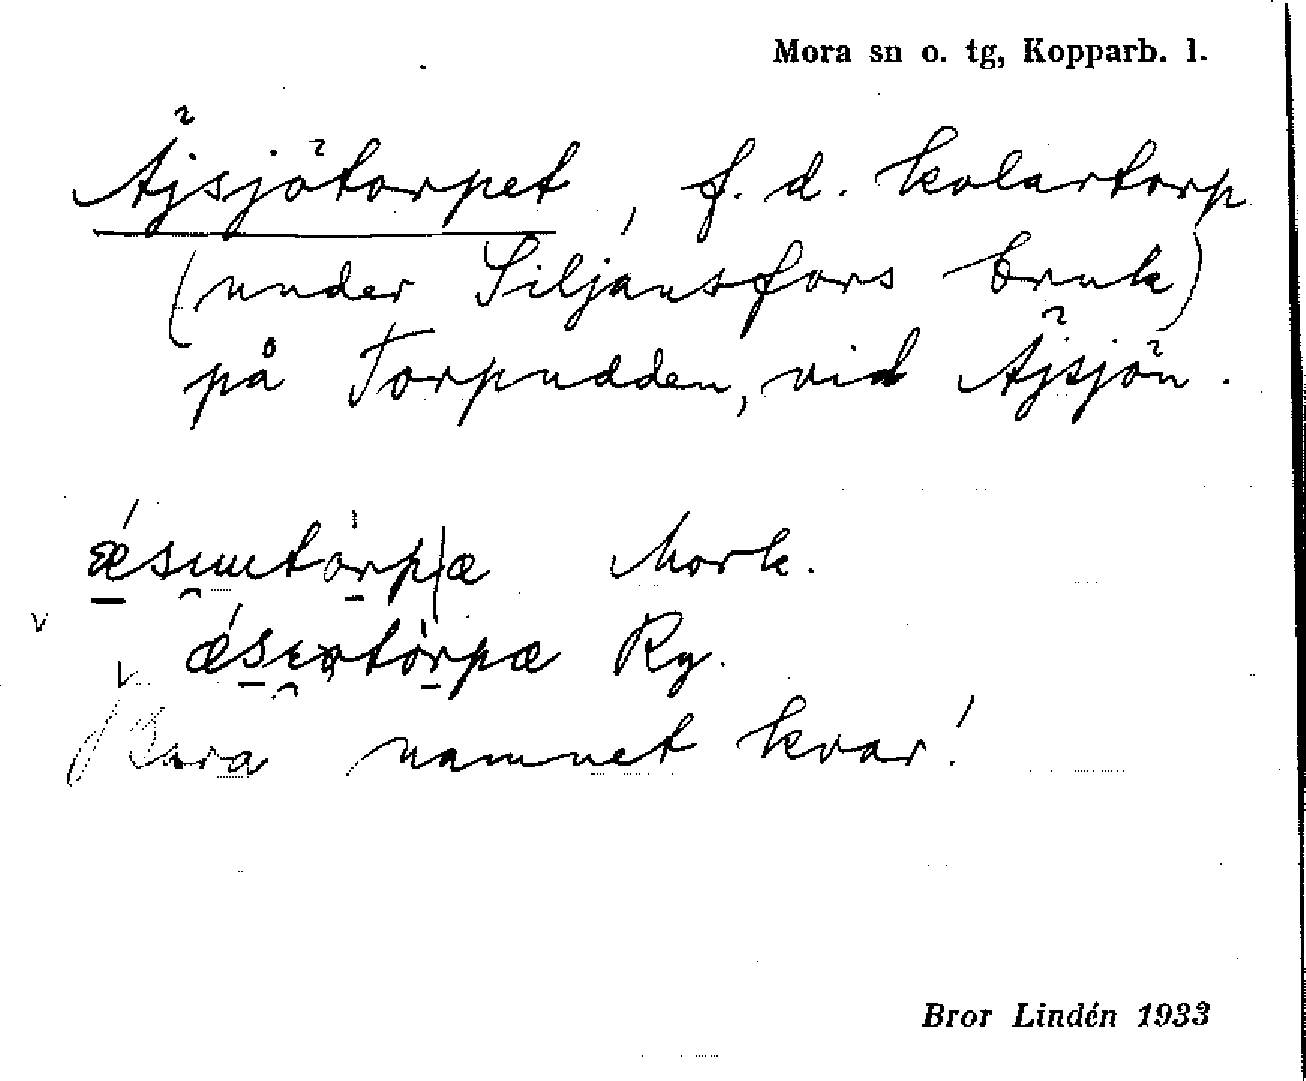 Mora sn o. tg, Kopparb. l.
Äjsjötorpet, f. d. kolartorp
(under Siljansfors bruk)
på Torpudden, vid Äjsjön.
Mork.
Ry.
Bara namnet kvar!
Bror Lindén 1933